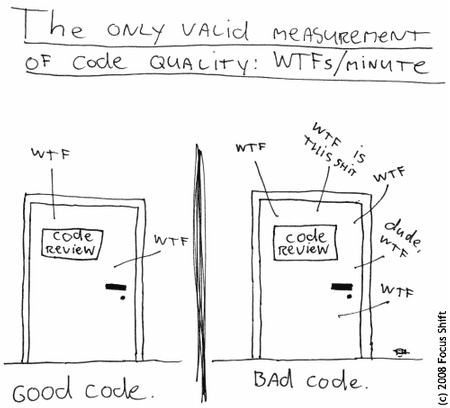 The ONLY VALID MEASUREMENT
OF Code QUALITY: WTFs/MINUTE
WTF
Code
REVIEW
WTF
GOOD CODE.
WTF
WTF is
THIS SHIT
WTF
code
REVIEW
dude,
WTF
WTF
BAd code.
(c) 2008 Focus Shift